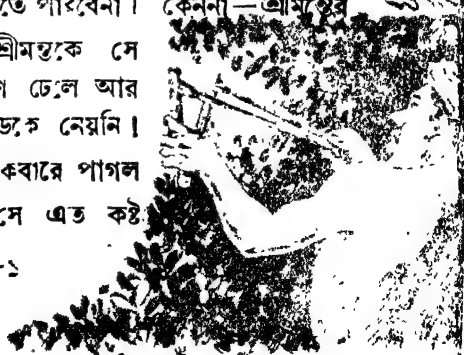 পারবেনা। কেননা—শ্রীমন্তের
শ্রীমন্তকে সে
ঢেলে আর
নেয়নি।
পাগল
সে এত কষ্ট
-১